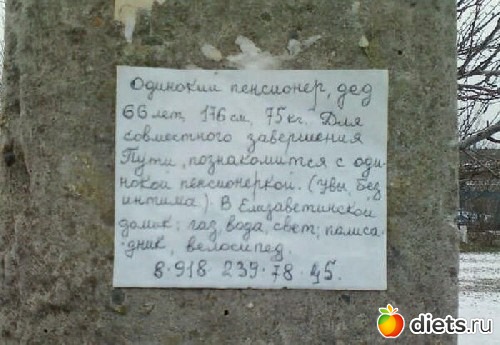 Одинокий пенсионер, дед
66 лет, 176 см, 75 кг. Для
совместного завершения
Пути, познакомится с оди-
нокой пенсионеркой. (увы, без
интима) В Елизаветинской
домик: газ, вода, свет; палиса-
дник, велосипед.
8·918·239·78·45.
diets.ru